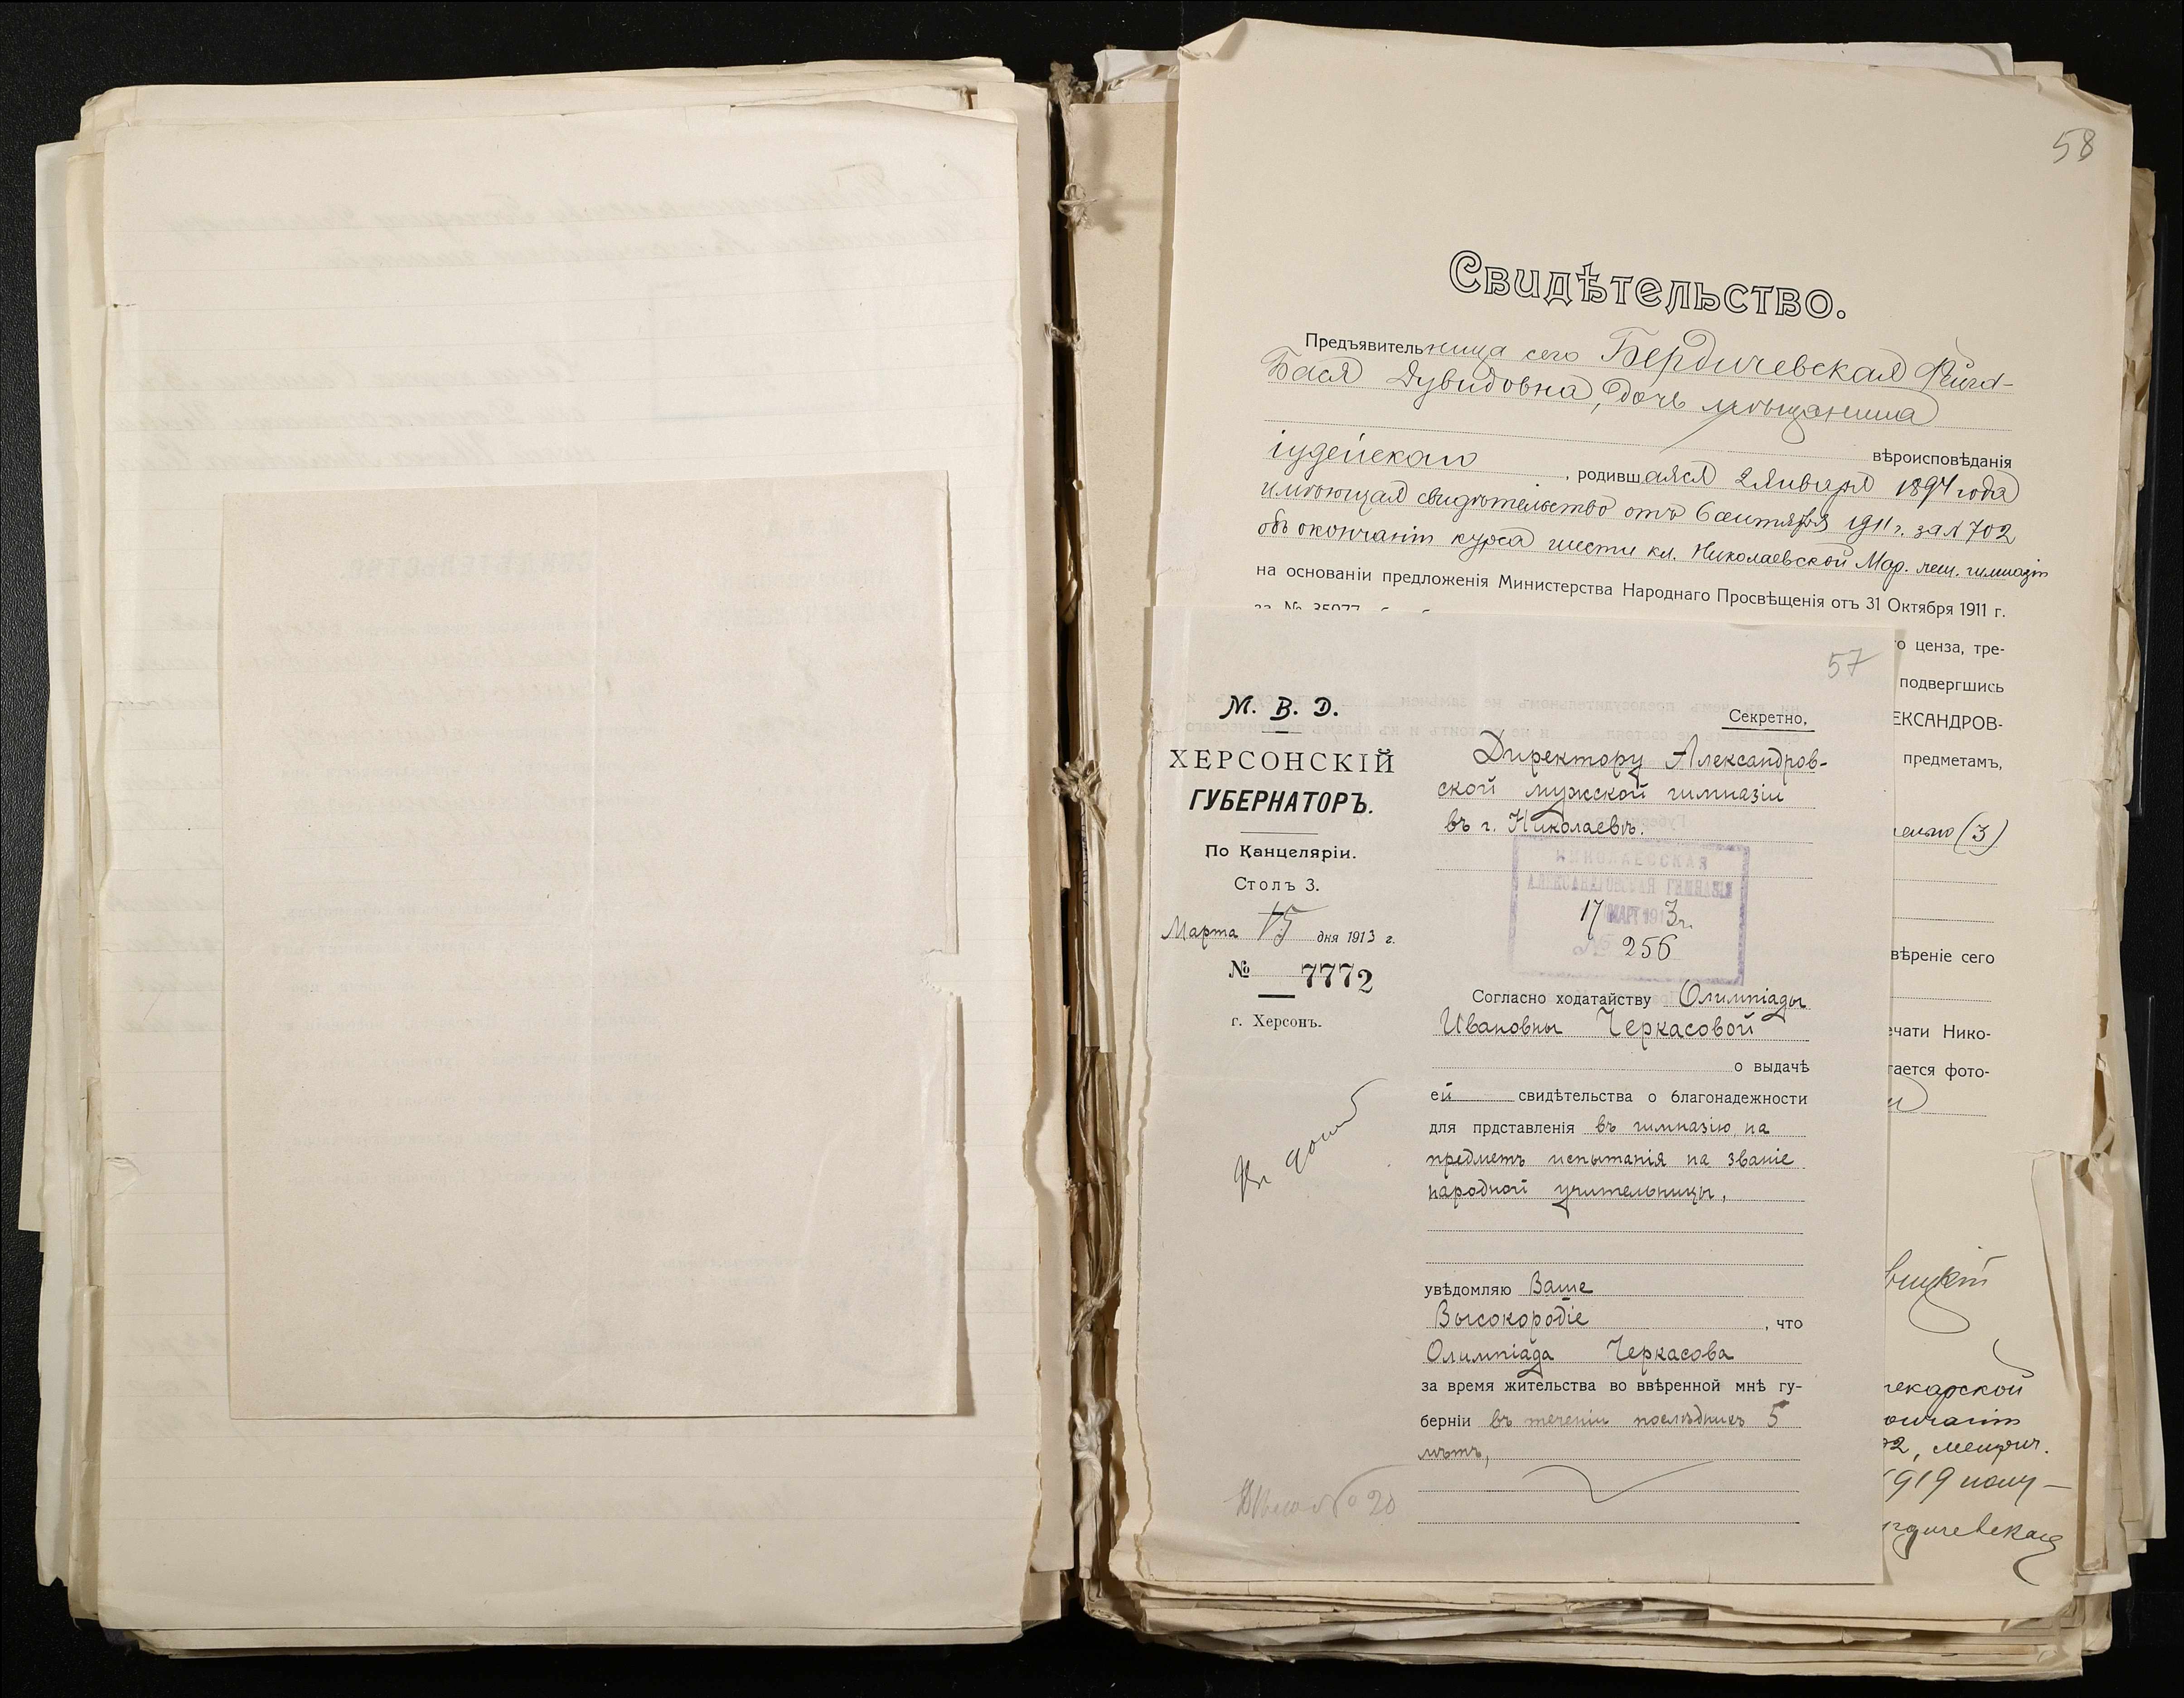 58
Свидѣтельство.
Предъявительница сего Бердичевская Фейга-
Бася Дувидовна, дочь мѣщанина
іудейскаго вѣроисповѣданія
, родившаяся 2 Января 1894 года
имѣющая свидѣтельство отъ 6 сентября 1911 г. за № 702
объ окончаніи курса шести кл. Николаевской Мар. жен. гимназіи
на основаніи предложенія Министерства Народнаго Просвѣщенія отъ 31 Октября 1911 г.
за № 35077
о ценза, тре-
подвергшись
ЕКСАНДРОВ-
предметамъ,
(3)
вѣреніе сего
ечати Нико-
гается фото-
екарской
1919 полу-
57
М. В. Д.
ХЕРСОНСКІЙ
ГУБЕРНАТОРЪ.
По Канцеляріи.
Столъ 3.
Марта 15 дня 1913 г.
№ 7772
г. Херсонъ.
Секретно.
Директору Александров-
ской мужской гимназіи
въ г. Николаевѣ.
НИКОЛАЕВСКАЯ
АЛЕКСАНДРОВСКАЯ ГИМНАЗІЯ
17 МАРТ 1913 г.
№ 256
Согласно ходатайству Олимпіады
Ивановны Черкасовой
о выдачѣ
ей свидѣтельства о благонадежности
для прдставленія въ гимназію, на
предметъ испытанія на званіе
народной учительницы,
увѣдомляю Ваше
Высокородіе, что
Олимпіада Черкасова
за время жительства во ввѣренной мнѣ гу-
берніи въ теченіи послѣднихъ 5
лѣтъ,
Къ дѣлу
№ 20